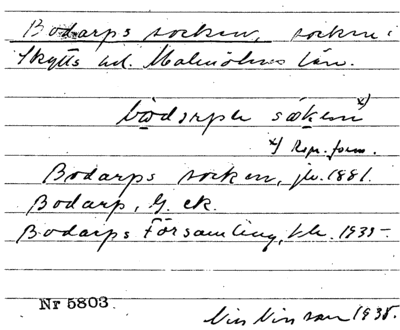 Bodarps socken, socken i
Skytts hd. Malmöhus län.
bodarps såkenˣ⁾
x) Repr. form.
Bodarps socken, jb. 1881.
Bodarp, G. ek.
Bodarps Församling, kb. 1935-
Nr 5803.
1938.